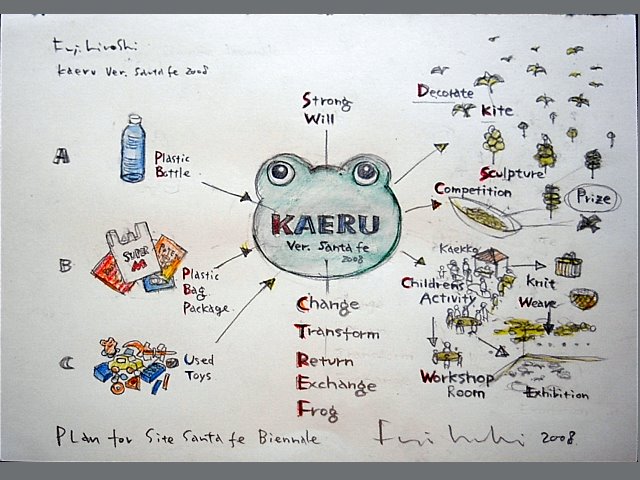 Fuji Hiroshi
Kaeru Ver. Santa fe 2008
A
Plastic
Bottle
B
SUPER
Plastic
Bag
Package
C
Used
Toys
Strong
Will
KAERU
Ver. Santa fe
2008
Change
Transform
Return
Exchange
Frog
Decorate
Kite
Sculpture
Competition
Prize
Kaekko
Childrens
Activity
Knit
Weave
Workshop
Room
Exhibition
Plan for Site Santa fe Biennale
2008